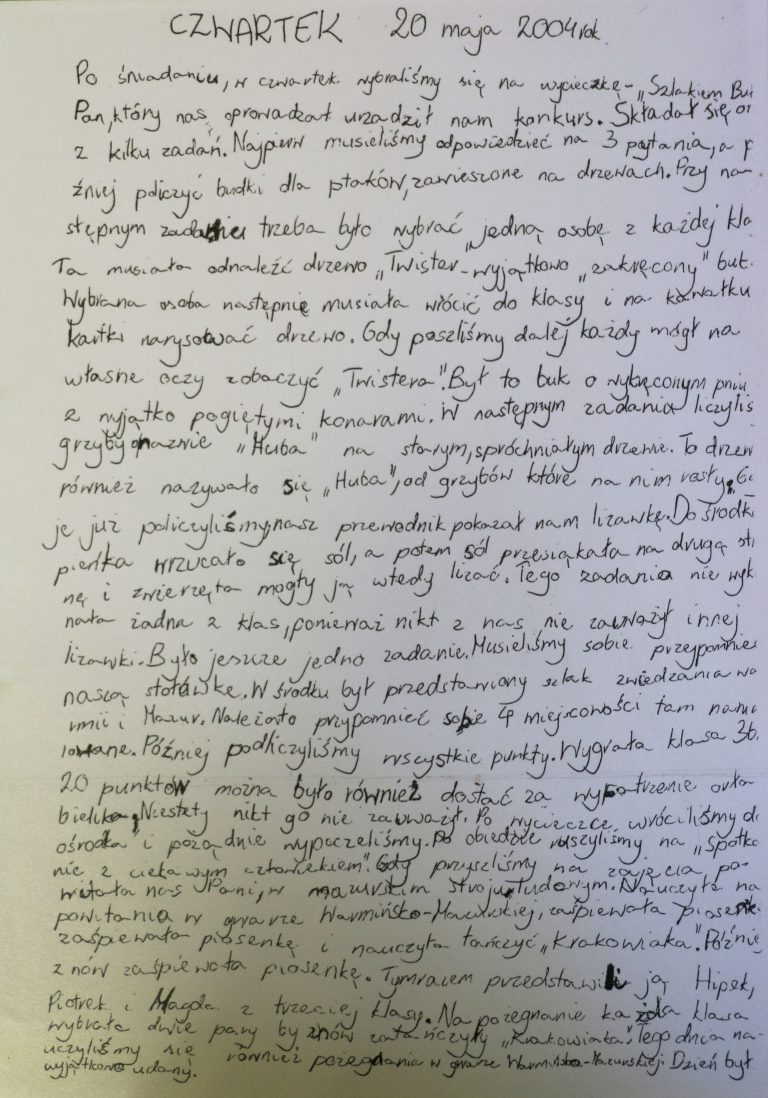 CZWARTEK 20 maja 2004 rok.
Po śniadaniu, w czwartek wybraliśmy się na wycieczkę - „Szlakiem Buk
Pan, który nas oprowadzał urządził nam konkurs. Składał się on
z kilku zadań. Najpierw musieliśmy odpowiedzieć na 3 pytania, a p
źniej policzyć budki dla ptaków, zawieszone na drzewach. Przy na-
stępnym zadaniu trzeba było wybrać jedną osobę z każdej kla
Ta musiała odnaleźć drzewo „Twister - wyjątkowo „zakręcony" buk.
Wybrana osoba następnie musiała wrócić do klasy i na kawałku
kartki narysować drzewo. Gdy poszliśmy dalej każdy mógł na
własne oczy zobaczyć „Twistera". Był to buk o wykręconym pniu
z wyjątko pogiętymi konarami. W następnym zadaniu liczyliś
grzyby o nazwie "Huba" na starym, spróchniałym drzewie. To drzew
również nazywało się „Huba", od grzybów które na nim rosły. G
je już policzyliśmy, nasz przewodnik pokazał nam lizawkę. Do środk
pieńka wrzucało się sól, a potem sól przesiąkała na drugą st
nę i zwierzęta mogły ją wtedy lizać. Tego zadania nie wyk
nała żadna z klas, ponieważ nikt z nas nie zauważył innej
lizawki. Było jeszcze jedno zadanie. Musieliśmy sobie przypomnie
naszą stołówkę. W środku był przedstawiony szlak zwiedzania wa
rmii i Mazur. Należało przypomnieć sobie 4 miejscowości tam nama
lowane. Później podliczyliśmy wszystkie punkty. Wygrała klasa 3b.
20 punktów można było również dostać za wypatrzenie orła
bielika. Niestety nikt go nie zauważył. Po wycieczce, wróciliśmy d
ośrodka i porządnie wypoczeliśmy. Po obiedzie ruszyliśmy na „Spotka
nie z ciekawym człowiekiem". Gdy przyszliśmy na zajęcia po-
witała nas Pani, w mazurskim stroju ludowym. Nauczyła na
powitania w gwarze Warmińsko-Mazurskiej, zaśpiewała piosenk
zaśpiewała piosenkę i nauczyła tańczyć „Krakowiaka". Późnie
znów zaśpiewała piosenkę. Tymrazem przedstawili ją Hipek,
Piotrek i Magda z trzeciej klasy. Na pożegnanie każda klasa
wybrała dwie pary by znów zatańczyły „Krakowiaka". Tego dnia na-
uczyliśmy się również pożegnania w gwarze Warmińsko-Mazurskiej. Dzień był
wyjątkowo udany.